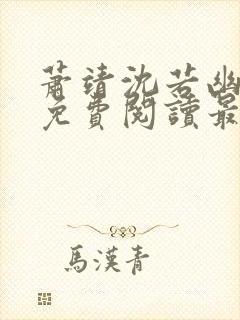 蕭靖沈若幽
免費閱讀最
馬漢青